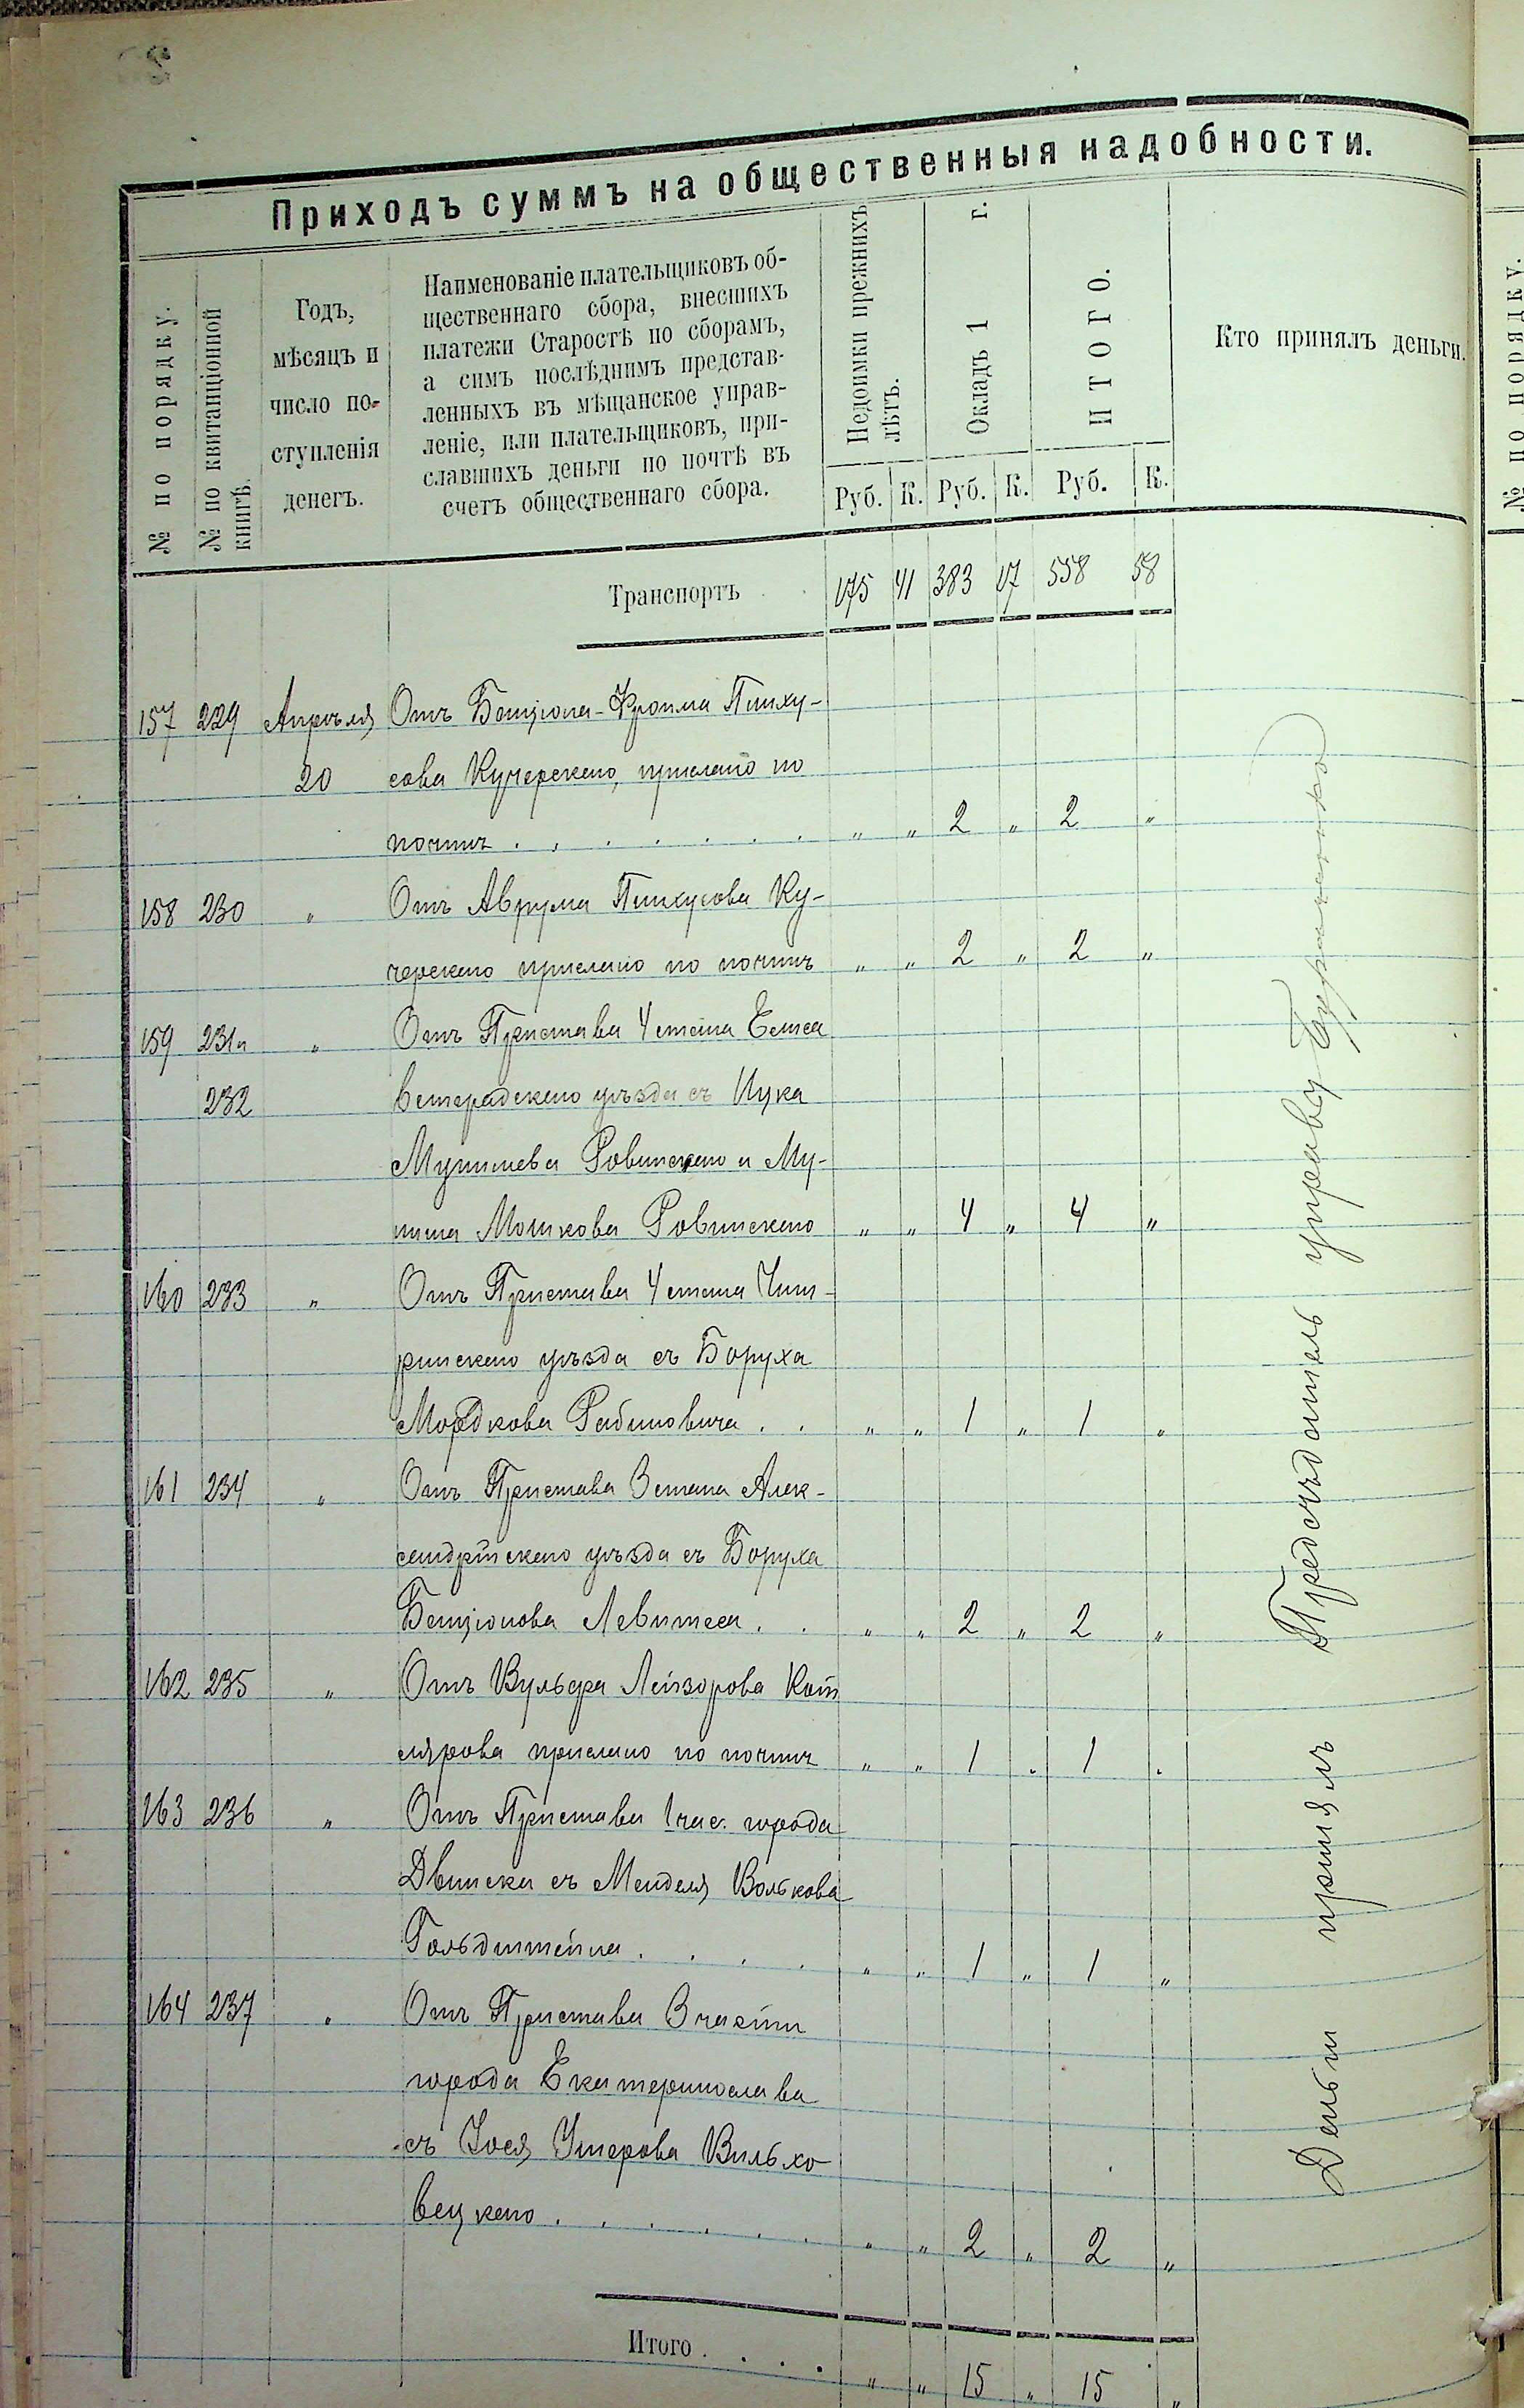 Приходъ суммъ на общественныя надобности.
№ по порядку.
№ по квитанціонной книгѣ.
Годъ,
мѣсяцъ и
число по-
ступленія
денегъ.
Наименованіе плательщиковъ об-
щественнаго сбора, внесшихъ
платежи Старостѣ по сборамъ,
а симъ послѣднимъ представ-
ленныхъ въ мѣщанское управ-
леніе, или плательщиковъ, при-
славшихъ деньги по почтѣ въ
счетъ общественнаго сбора.
Недоимки прежнихъ лѣтъ.
Окладъ 1 г.
ИТОГО.
Кто принялъ деньги.
Руб. К. Руб. К. Руб. К.
Транспортъ 175 41 383 17 558 58
157 229 Апрѣля Отъ Бенціона-Фроима Пинху-
20 сова Кучерскаго, прислано по
почтѣ . . . . . . . „ „ 2 „ 2 „
158 230 „ Отъ Аврума Пинхусова Ку-
черскаго прислано по почтѣ „ „ 2 „ 2 „
159 231 и „ Отъ Пристава 4 стана Елиса
232 ветградскаго уѣзда съ Ицка
Мунишева Ровинскаго и Му-
ниша Мошкова Ровинскаго „ „ 4 „ 4 „
160 233 „ Отъ Пристава 4 стана Чиги-
ринскаго уѣзда съ Боруха
Мордкова Рабиновича . . „ „ 1 „ 1 „
161 234 „ Отъ Пристава 3 стана Алек-
сандрійскаго уѣзда съ Боруха
Бенціонова Левитеса . . „ „ 2 „ 2 „
162 235 „ Отъ Вульфа Лейзорова Кот
лярова прислано по почтѣ „ „ 1 „ 1 „
163 236 „ Отъ Пристава 1 час. города
Двинска съ Менделя Волькова
Гольдштейна . . . . „ „ 1 „ 1 „
164 237 „ Отъ Пристава 3 части
города Екатеринослава
съ Іося Ушерова Вильхо
вецкаго . . . . . . „ „ 2 „ 2 „
Итого . . . . „ „ 15 „ 15 „
Деньги принялъ Предсѣдатель управы
№ по порядку.